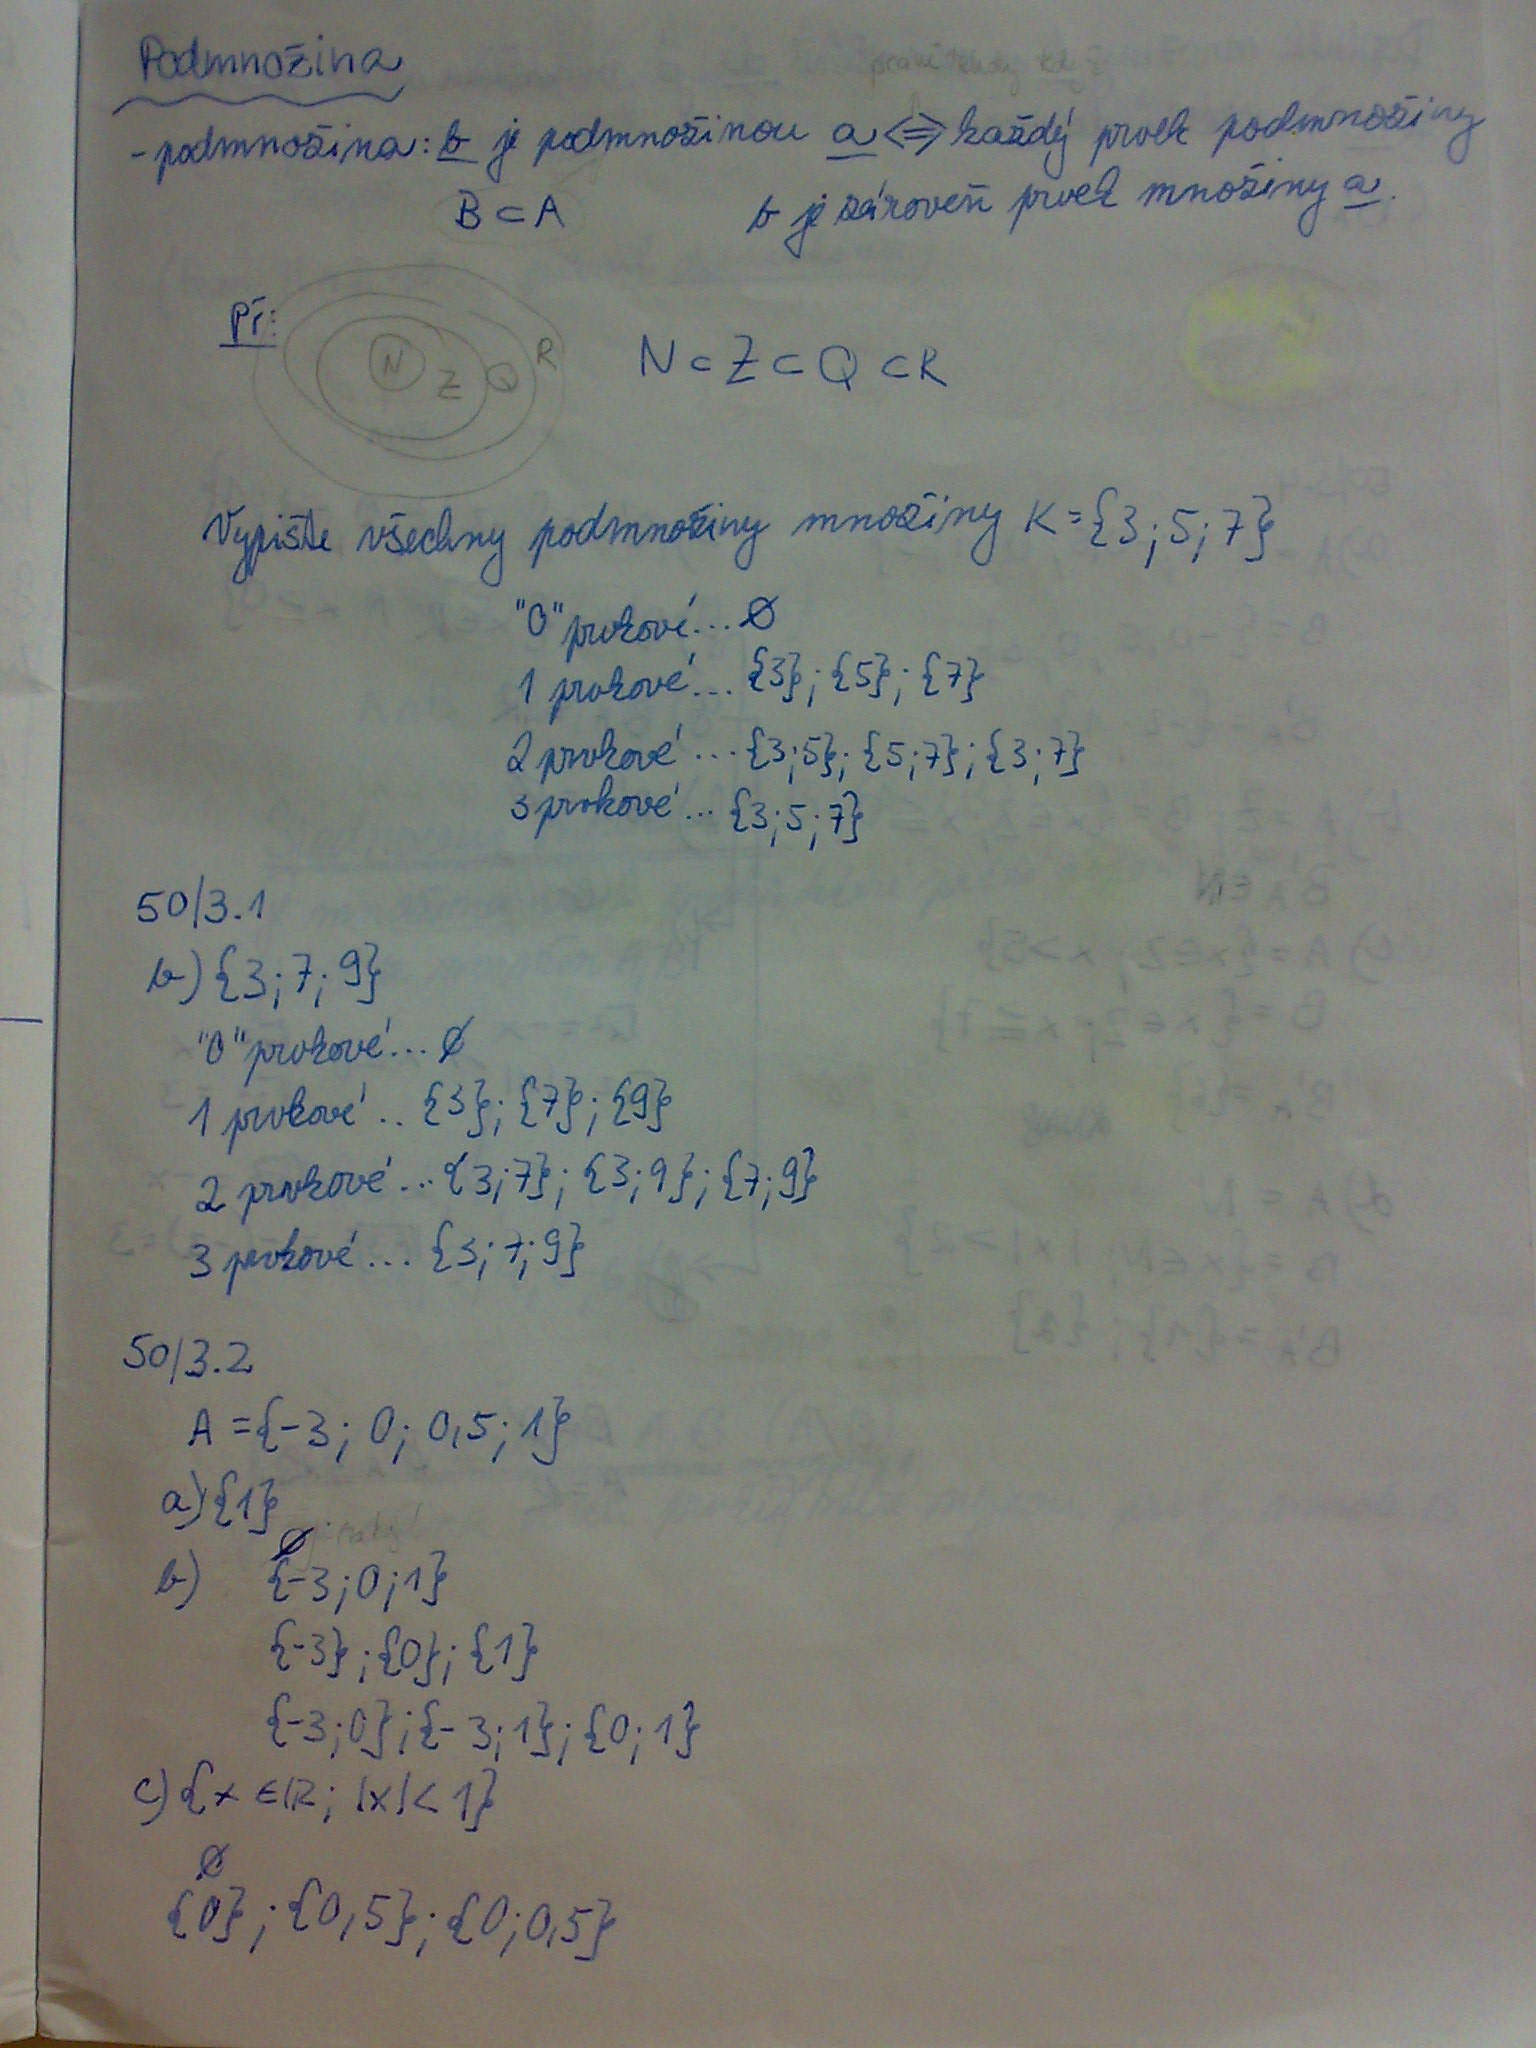 Podmnožina
právě tehdy když
- podmnožina: b je podmnožinou a <=> každý prvek podmnožiny
B ⊂ A b je zároveň prvek množiny a.
Př:
N Z Q R
N ⊂ Z ⊂ Q ⊂ R
Vypište všechny podmnožiny množiny K = {3; 5; 7}
"0" prvkové... ∅
1 prvkové... {3}; {5}; {7}
2 prvkové ... {3;5}; {5;7}; {3;7}
3 prvkové... {3;5;7}
50/3.1
b) {3; 7; 9}
"0" prvkové... ∅
1 prvkové .. {3}; {7}; {9}
2 prvkové... {3;7}; {3;9}; {7;9}
3 prvkové... {3;7;9}
50/3.2
A = {-3; 0; 0,5; 1}
a) {1}
∅
b) {-3; 0; 1}
{-3}; {0}; {1}
{-3;0}; {-3;1}; {0;1}
c) {x ∈ R; |x| < 1}
∅
{0}; {0,5}; {0; 0,5}